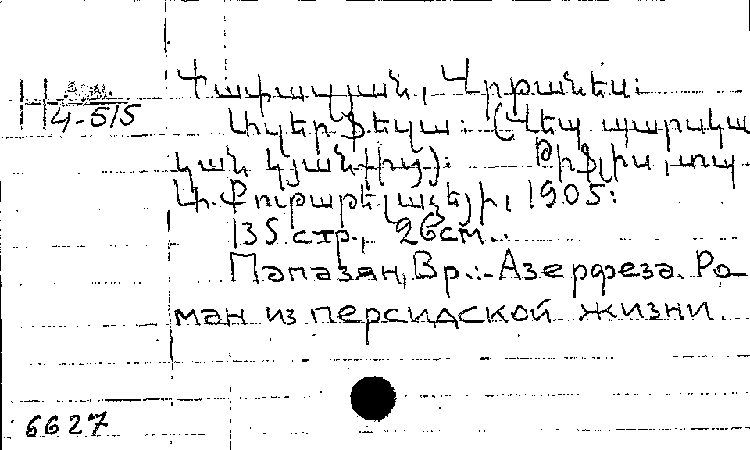 Փափազյան, Վրթանես:
H 4-515
Ազերֆեզա: (Վեպ պարսկա
կան կյանքից): Թիֆլիս, տպ.
Մ. Քութաթելաձեյի, 1905:
135 стр., 26см.
Папазян, Вр.:- Азерфеза. Ро-
ман из персидской жизни.
6627